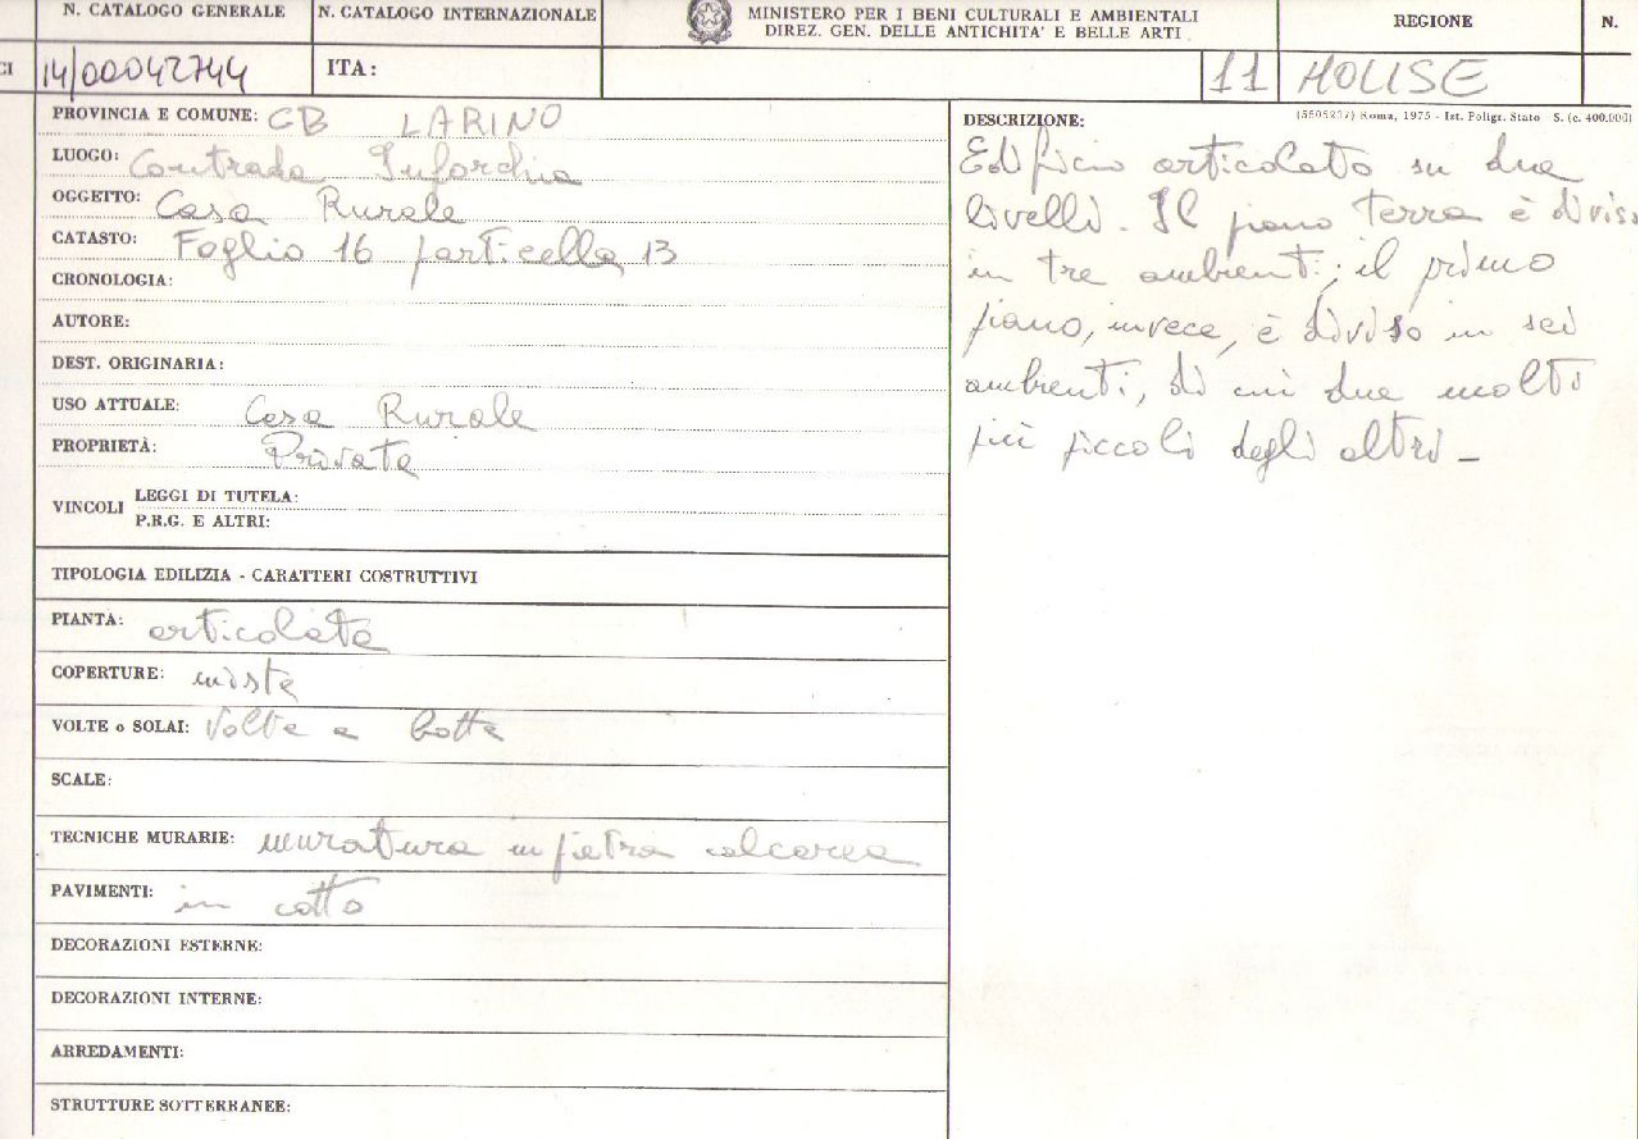 N. CATALOGO GENERALE
N. CATALOGO INTERNAZIONALE
MINISTERO PER I BENI CULTURALI E AMBIENTALI
DIREZ. GEN. DELLE ANTICHITA' E BELLE ARTI
REGIONE
N.
CI
14/00042744
ITA:
11 MOLISE
PROVINCIA E COMUNE: CB LARINO
LUOGO: Contrada Inforchia
OGGETTO: Casa Rurale
CATASTO: Foglio 16 particella 13
CRONOLOGIA:
AUTORE:
DEST. ORIGINARIA:
USO ATTUALE: Casa Rurale
PROPRIETÀ: Privata
VINCOLI
LEGGI DI TUTELA:
P.R.G. E ALTRI:
TIPOLOGIA EDILIZIA - CARATTERI COSTRUTTIVI
PIANTA: articolata
COPERTURE: miste
VOLTE o SOLAI: Volte a botte
SCALE:
TECNICHE MURARIE: muratura in pietra calcarea
PAVIMENTI: in cotto
DECORAZIONI ESTERNE:
DECORAZIONI INTERNE:
ARREDAMENTI:
STRUTTURE SOTTERRANEE:
DESCRIZIONE:
(5605237) Roma, 1975 - Ist. Poligr. Stato - S. (c. 400.000)
Edificio articolato su due
livelli. Il piano terra è divis
in tre ambienti; il primo
piano, invece, è diviso in sei
ambienti, di cui due molto
più piccoli degli altri -